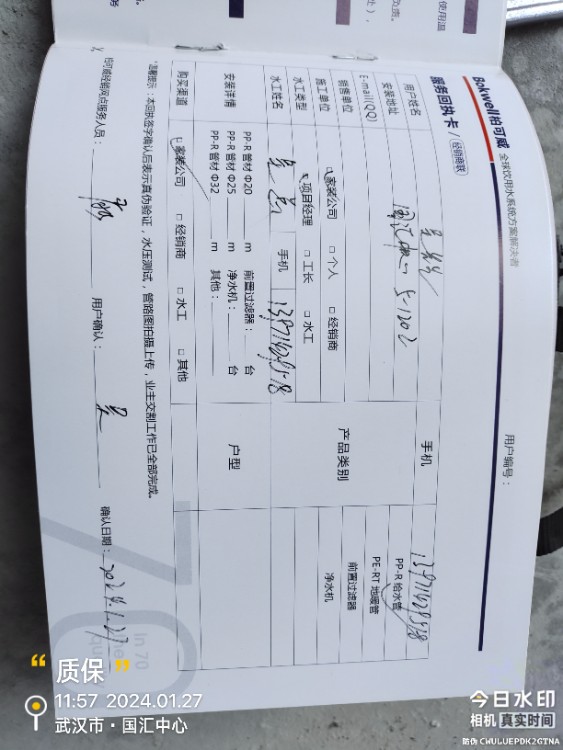 Bokwell柏可威 全球饮用水系统方案解决者
服务回执卡/经销商联
用户编号：
用户姓名
手机
安装地址
5-1202
E-mail(QQ)
产品类别
PP-R 给水管
PE-RT 地暖管
前置过滤器
净水机
销售单位 □ 家装公司 □ 个人 □ 经销商
施工单位
水工类型 □ 项目经理 □ 工长 □ 水工
水工姓名 手机
安装详情
PP-R 管材 Φ20 m 前置过滤器： 台
PP-R 管材 Φ25 m 净水机： 台
PP-R 管材 Φ32 m 其他：
户型
购买渠道 □ 家装公司 □ 经销商 □ 水工 □ 其他
*温馨提示：本回执签字确认后表示真伪验证，水压测试，管路图拍摄上传，业主交割工作已全部完成。
柏可威经销网点服务人员： 用户确认： 吴 确认日期：2024.1.27
In 70
质保
11:57 2024.01.27
武汉市·国汇中心
今日水印
相机 真实时间
防伪 CWULUEPDK2GTNA